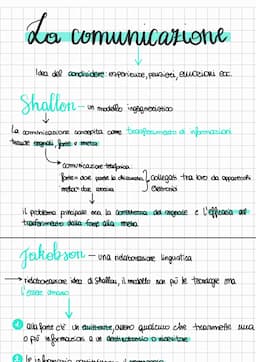 La comunicazione
Idea del condividere: esperienze, pensieri, emozioni ecc.
Shallon - un modello ingegneristico
La comunicazione concepita come trasferimento di informazioni
tramite segnali, fonte e meta
comunicazione telefonica:
fonte = dove parte la chiamata
meta = dove arriva
collegati tra loro da apparecchi
elettronici
il problema principale era la consistenza del segnale e l'efficacia del
trasferimento dalla fonte alla meta
Jakobson - una rielaborazione linguistica
rielaborazione idea di Shallon, il modello non più le tecnologie ma
l'essere umano
1 alla fonte c'è un emittente, ovvero qualcuno che trasmette una
o più informazioni a un destinatario o ricevitore
2 le informazioni